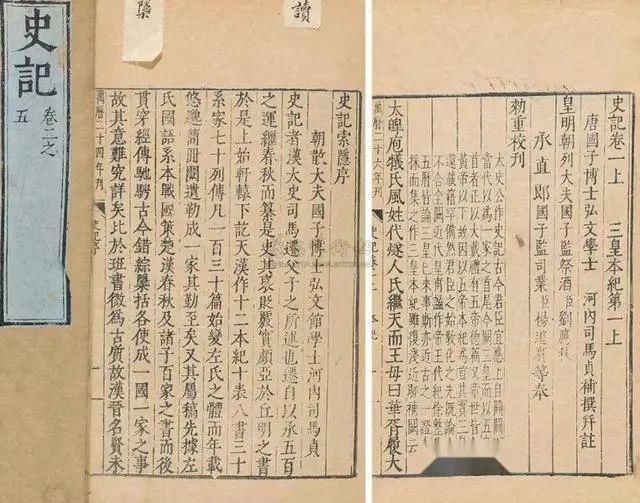 史記
卷二之
五
讀
史記索隱序
朝散大夫國子博士弘文館學士河內司馬貞
史記者漢太史司馬遷父子之所述也遷自以承五百
之運繼春秋而纂是史其褒貶覈實頗亞於丘明之書
於是上始軒轅下訖天漢作十二本紀十表八書三十
系家七十列傳凡一百三十篇始變左氏之體而年載
悠邈簡冊闕遺勒成一家其勤至矣又其屬稿先據左
氏國語系本戰國策楚漢春秋及諸子百家之書而後
貫穿經傳馳騁古今錯綜檃括各使成一國一家之事
故其意難究詳矣比於班書微為古質故漢晉名賢未
萬曆二十四年刊
史記序
史記卷一上 三皇本紀第一上
唐國子博士弘文學士 河內司馬貞補撰幷註
皇明朝列大夫國子監祭酒臣劉應秋
承直郎國子監司業臣楊道賓等奉
勅重校刊
太史公作史記古今君臣宜應上自開闢下
當代以為一家之首尾今闕三皇而以五帝
首者正以大戴禮有五帝德篇又帝世皆
黃帝以下故因以五帝本紀為首其實三皇
還載籍罕備然君臣之始教化之先既論
不合全闕近代皇甫謐作帝王代紀徐整
五曆皆論三皇已來事斯亦近古之一證今
採而集之作三皇本紀雖復淺近聊補闕云
太皞庖犧氏風姓代燧人氏繼天而王母曰華胥履大
萬曆二十六年刊